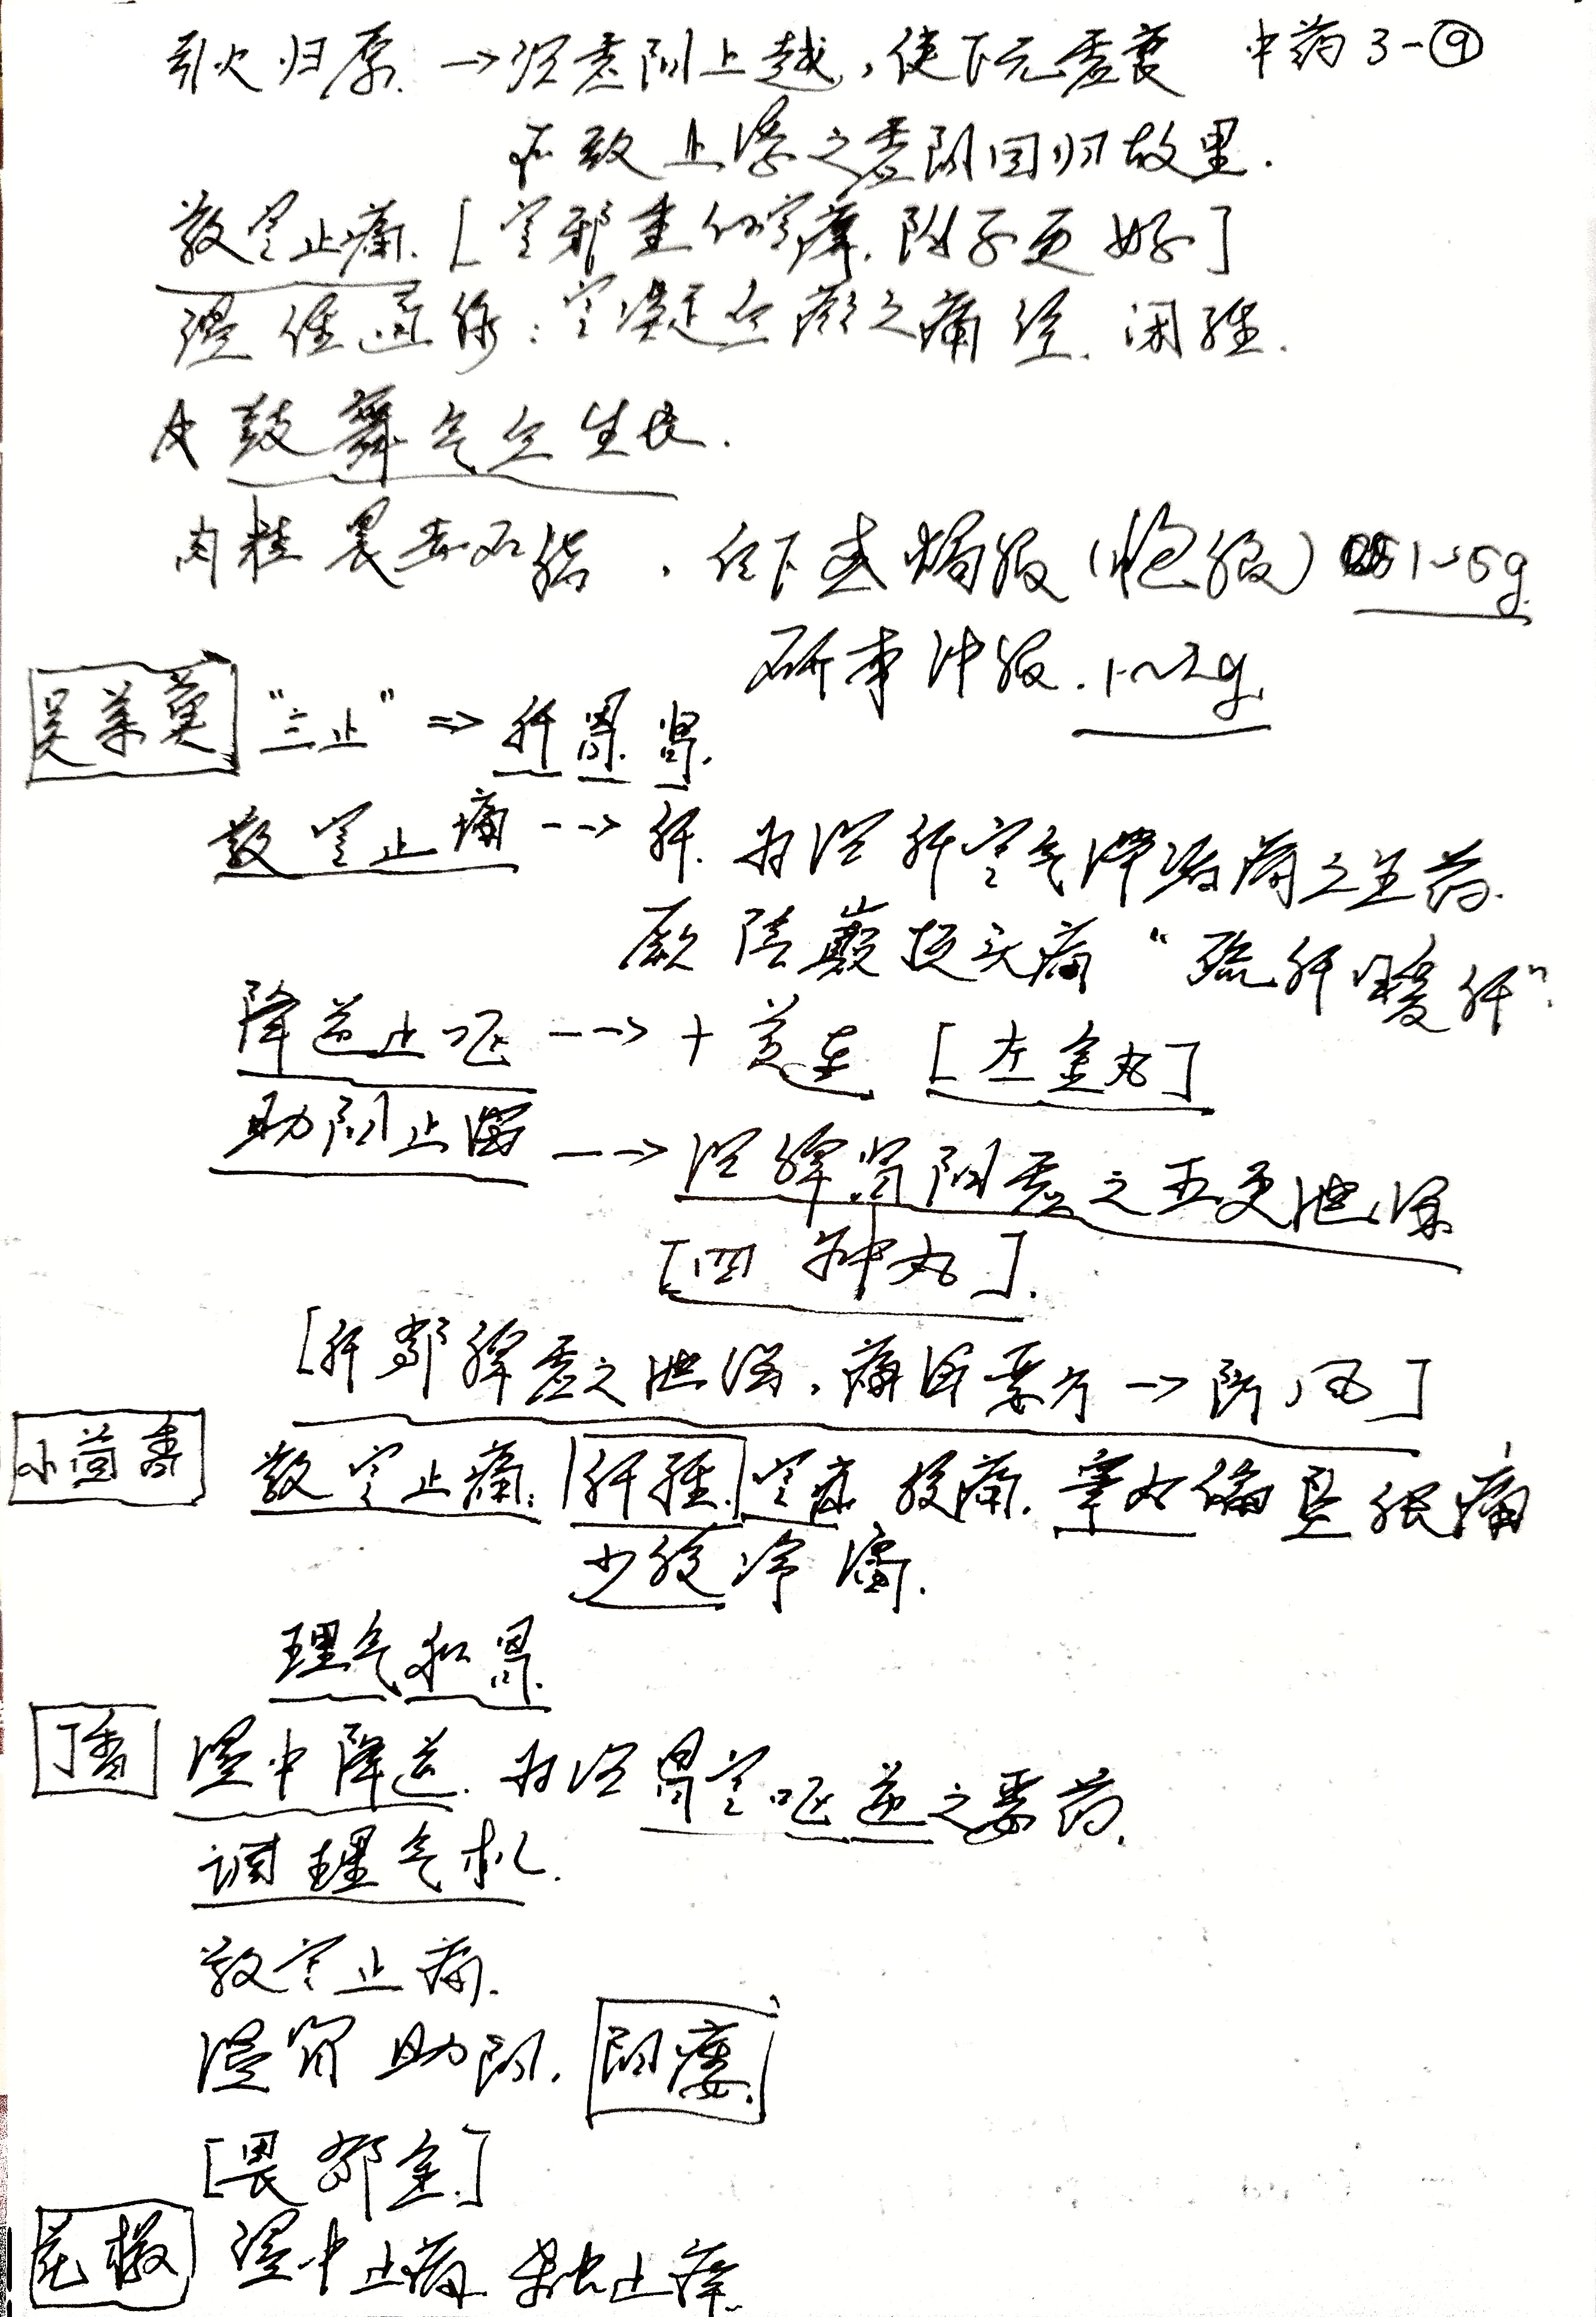 引火归原 → 治虚阳上越，使下元虚衰 中药3-⑨
所致上浮之虚阳回归故里.
散寒止痛. [寒邪重似寒痹. 附子更好]
温经通脉：寒凝血瘀之痛经. 闭经.
鼓舞气血生长.
肉桂畏赤石脂, 后下或焗服(泡服) 1~5g
研末冲服. 1~2g
吴茱萸 "三止" ⇒ 肝. 胃. 肾.
散寒止痛 --→ 肝. 为治肝寒气滞诸痛之主药.
厥阴巅顶头痛 "疏肝暖肝".
降逆止呕 --→ + 黄连 [左金丸]
助阳止泻 --→ 治脾肾阳虚之五更泄泻
[四神丸].
[肝郁脾虚之泄泻, 痛泻要方 → 防风]
小茴香 散寒止痛: 肝经. 寒疝腹痛. 睾丸偏坠胀痛
少腹冷痛.
理气和胃.
丁香 温中降逆. 为治胃寒呕逆之要药.
调理气机.
散寒止痛.
温肾助阳. 阳痿.
[畏郁金.]
花椒 温中止痛. 杀虫止痒.